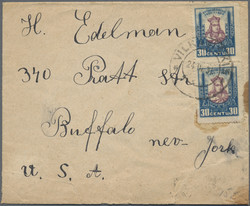 H. Edelman
370 Pratt str
Buffalo nev-York
U. S. A.
30 CENTŲ 30
30 CENTŲ 30